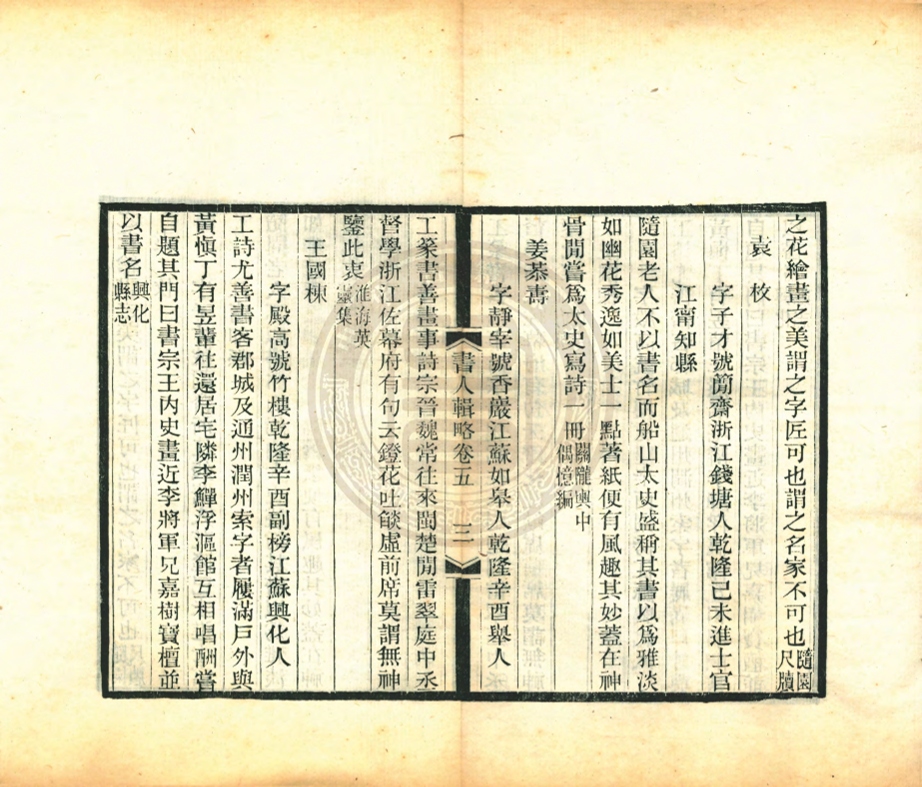 之花繪畫之美謂之字匠可也謂之名家不可也隨園尺牘
袁枚
字子才號簡齋浙江錢塘人乾隆己未進士官
江甯知縣
隨園老人不以書名而船山太史盛稱其書以爲雅淡
如幽花秀逸如美士一點著紙便有風趣其妙蓋在神
骨閒嘗爲太史寫詩一冊關隴輿中偶憶編
姜恭壽
字靜宰號香巖江蘇如皋人乾隆辛酉舉人
書人輯略卷五 三
工篆書善畫事詩宗晉魏常往來閩楚閒雷翠庭中丞
督學浙江佐幕府有句云鐙花吐燄虛前席莫謂無神
鑒此衷淮海英靈集
王國棟
字殿高號竹樓乾隆辛酉副榜江蘇興化人
工詩尤善書客郡城及通州潤州索字者履滿戸外與
黃愼丁有昱輩往還居宅隣李鱓浮漚館互相唱酬嘗
自題其門曰書宗王內史畫近李將軍兄嘉樹寶檀並
以書名興化縣志